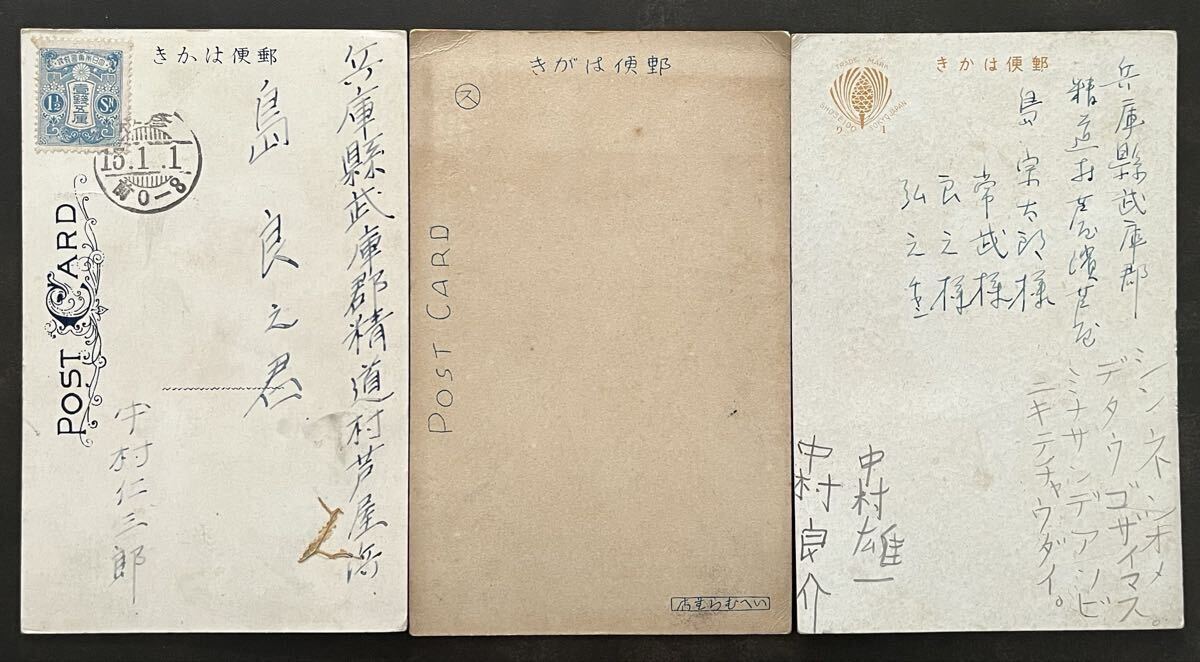 きかは便郵
壹錢五厘
1½ Sn
15.1.1
前0-8
POST CARD
兵庫縣武庫郡精道村芦屋浜
島良之君
中村仁三郎
きがは便郵
ス
POST CARD
店堂らむへい
きかは便郵
TRADE MARK
TOKYO JAPAN
兵庫縣武庫郡
精道村芦屋濱芦屋
島宗太郎様
常武様
良之様
弘之
シンネンオメ
デタウゴザイマス。
ミナサンデアソビ
ニキテチャウダイ。
中村雄一
中村良介